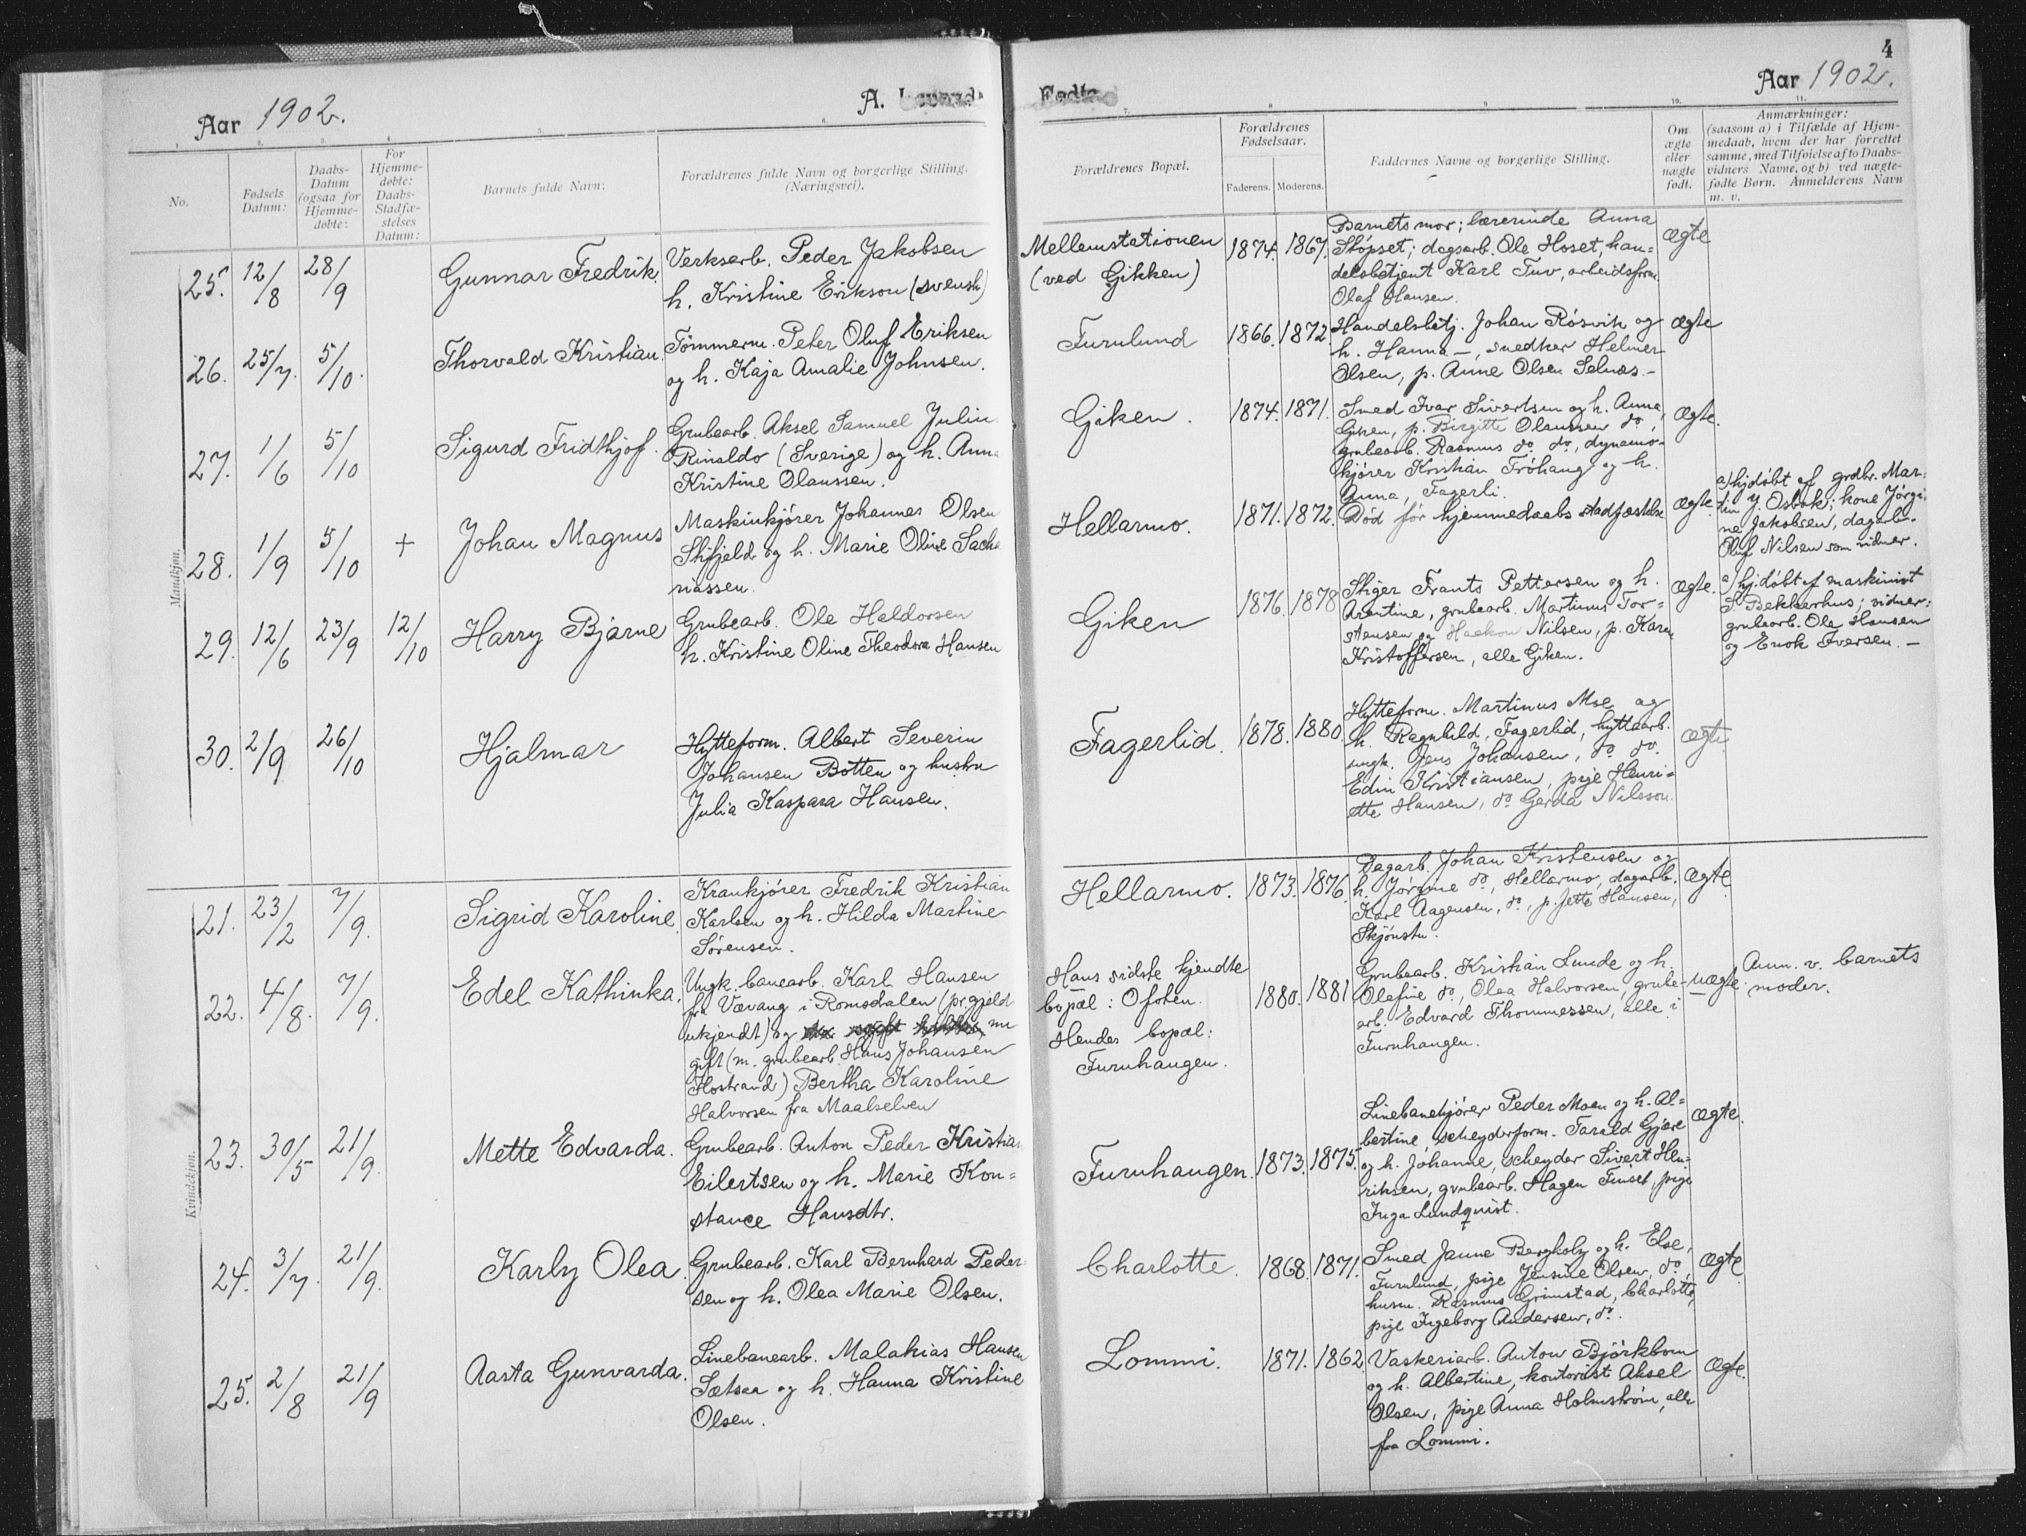 4
Aar 1902.
A. Levende
Fødte
Aar 1902.
1. 2. 3. 4. 5. 6. 7. 8. 9. 10. 11.
No.
Fødsels Datum:
Daabs-Datum (ogsaa for Hjemme-døbte:
For Hjemme-døbte: Daabs-Stadfæ-stelses Datum:
Barnets fulde Navn:
Forældrenes fulde Navn og borgerlige Stilling. (Næringsvei).
Forældrenes Bopæl.
Forældrenes Fødselsaar.
Faderens. Moderens.
Faddernes Navne og borgerlige Stilling.
Om ægte eller uægte født.
Anmærkninger:
(saasom a) i Tilfælde af Hjem-
medaab, hvem der har forrettet
samme, med Tilføielse af to Daabs-
vidners Navne, og b) ved uægte-
fødte Børn. Anmelderens Navn
m. v.
Mandkjøn.
25. 12/8 28/9 Gunnar Fredrik.
Verksarb. Peder Jakobsen
h. Kristine Erikson (svensk)
Mellemstationen
(ved Gikken)
1874. 1867.
Barnets mor; lærerinde Anna
Støpset; dagsarb. Ole Hoset, han=
delsbetjent Karl Tuv, arbeidsform.
Olaf Hansen.
Ægte
26. 25/7. 5/10. Thorvald Kristian.
Tømmerm. Peter Oluf Eriksen
og h. Kaja Amalie Johnsen.
Furulund
1866. 1872.
Handelsbetj. Johan Røsvik og
h. Hanna —, snedker Helmer
Olsen, p. Anne Olsen Selnæs.—
Ægte
27. 1/6 5/10 Sigurd Fridthjof.
Grubearb. Aksel Samuel Julin
Rinaldo (Sverige) og h. Anna
Kristine Olaussen.
Giken.
1874. 1871.
Smed Ivar Sivertsen og h. Anna,
Giken, p. Birgitte Olaussen do,
grubearb. Rasmus do. do., dynamo-
kjører Kristian Trøhaug og h.
Anna, Fagerli.
Ægte.
28. 1/9 5/10 + Johan Magnus
Maskinkjører Johannes Olsen
Skifjeld og h. Marie Oline Sacha
riassen.
Hellarmo.
1871. 1872.
Død før hjemmedaabs stadfæstelse
Ægte
a) hjdøbt af grdbr. Mar=
tin J. Osbak; kone Jørgi
ne Jakobsen, dagarb.
Oluf Nilsen som vidner.
29. 12/6 23/9 12/10 Harry Bjarne
Grubearb. Ole Haldorsen
h. Kristine Oline Theodora Hansen
Giken
1876. 1878
Stiger Frants Pettersen og h.
Arentine, grubearb. Martinus Tor=
stensen og Haakon Nilsen, p. Karen
Kristoffersen, alle Giken.
Ægte.
a) hjdøbt af maskinist
S. Bekkerhus; vidner:
grubearb. Ole Hansen
og Enok Iversen. —
30. 2/9 26/10 Hjalmar
Hytteform. Albert Severin
Johansen Botten og hustru
Julia Kaspara Hansen.
Fagerlid.
1878. 1880.
Hytteform. Martinus Moe og
h. Ragnhild, Fagerlid, hyttearb.
ungk. Jens Johansen, do. do.
Edin Kristiansen, pige Henri=
ette Hansen, do. Gerda Nilsson.
Ægte
Kvindekjøn.
21. 23/2 7/9. Sigrid Karoline.
Krankjører Fredrik Kristian
Karlsen og h. Hilda Martine
Sørensen.
Hellarmo.
1873. 1876.
Dagarb. Johan Kristensen og
h. Jørgine do., Hellarmo, dagarb.
Karl Aagensen, do., p. Jette Hansen,
Skjønstu.
Ægte.
22. 4/8. 7/9. Edel Kathinka.
Ungk. banearb. Karl Hansen
fra Vævang i Romsdalen (pr.gjeld
ukjendt) og nu
gift (m. grubearb. Hans Johansen
Hostrand) Bertha Karoline
Halvorsen fra Maalselven
Hans sidste kjendte
bopæl: Ofoten.
Hendes bopæl:
Furuhaugen.
1880. 1881
Grubearb. Kristian Lunde og h.
Olafine do, Olea Halvorsen, grube-
arb. Edvard Thommessen, alle i
Furuhaugen.
uægte.
Anm. v. barnets
moder.
23. 30/5 21/9. Mette Edvarda.
Grubearb. Anton Peder Kristian
Eilertsen og h. Marie Kon=
stance Hansdtr.
Furuhaugen.
1873. 1875.
Linebanekjører Peder Moen og h. Al=
bertine, scheyderform. Tarald Gjære
og h. Johanne, scheyder Sivert Hen=
riksen, grubearb. Hagen Finset, pige
Inga Lundquist.
Ægte.
24. 3/7. 21/9. Karly Olea.
Grubearb. Karl Bernhard Peder=
sen og h. Olea Marie Olsen.
Charlotte.
1868. 1871.
Smed Janne Bergholz og h. Else,
Furulund, pige Jensine Olsen, do,
husm. Rasmus Grimstad, Charlotte,
pige Ingeborg Andersen, do.
Ægte.
25. 2/8 21/9 Aasta Gunvarda.
Linebanearb. Malakias Hansen
Sætsaa og h. Hanna Kristine
Olsen.
Lommi.
1871. 1862
Vaskeriarb. Anton Bjørkbom
og h. Albertine, kontorist Aksel
Olsen, pige Anna Holmstrøm, alle
fra Lommi.
Ægte.